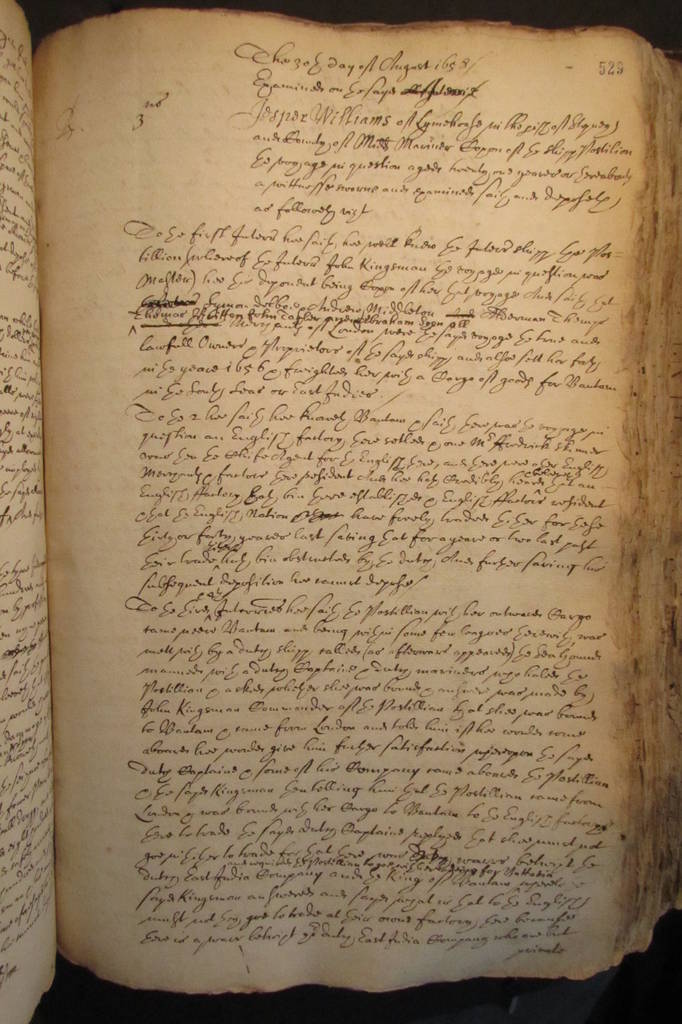 529
The 30th day of August 1658
Examined on the sayd
3us
Jesper Williams of Lymehouse in the pish of Stepney
and County of Midds Mariner Coxon of the shipp Postilion
the voyage in question aged twenty one yeares or thereabouts
a wittnesse sworne and examined saith and deposeth
as followeth vizt
To the first Interr hee saith, hee well knew the Interr shipp the Pos-
tillion whereof the Interr John Kingsman the voyage in question was
Master) hee this deponent being Coxon of her that voyage And saith that
Andrew Middleton Alderman Thomp
Thomas John Abraham
Merchants of London, were the sayd voyage the true and
lawfull Owners & Proprietors of the sayd shipp and alsoe sett her forth
in the yeare 1656 & freighted her with a Cargo of goods for Bantam
in the South Seas or East Indies
To the 2 hee saith hee knoweth Bantam & saith there was the voyage in
question an English factory there setled & one Mr Fredrick Skinner
was then the Chiefe Agent for the English there, and there were other English
Merchants & factors there resident And hee hath credibly heard that an
English ffactory hath bin there established & English ffactors resident
& that the English Nation have freely traded thither for these
thirty or forty yeares last saving that for a yeare or two last past
their trade hath bin obstructed by the dutch, And further saving his
subsequent deposition hee cannot depose
To the third Interries hee saith the Postillian with her outward Cargo
came neere Bantam and being within some few leagues therewith, was
mett with by a dutch shipp, called (as afterward appeared) the
manned with a dutch Captaine & dutch mariners, who haled the
Postillian & asked whither shee was bound & answere was made by
John Kingsman Commander of the Postillian that shee was bound
to Bantam & came from London and told him if hee would come
aboard hee would give him further satisfaction whereupon the sayd
dutch Captaine & some of his Company came aboard the Postillian
& the sayd Kingsman then telling him that the Postillian came from
London & was bound with her Cargo to Bantam to the English factory
there to trade the sayd dutch Captaine replyed that shee must not
goe thither to trade for that there was warre betwixt the
dutch East India Company and the King of Bantam
sayd Kingsman answered and sayd what is that to the English
must not they goe to trade at their owne factory there because
there is a warr betwixt ye dutch East India Company who are but
private